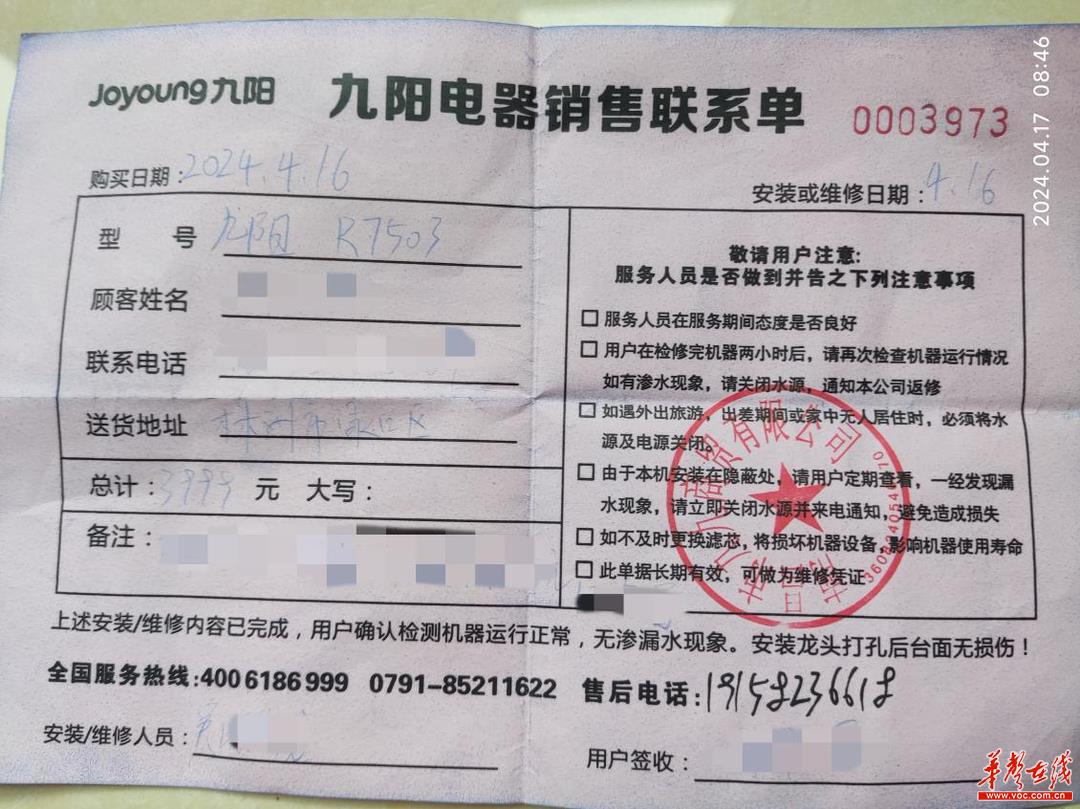 Joyoung九阳 九阳电器销售联系单 0003973
2024.04.17 08:46
购买日期:2024.4.16 安装或维修日期:4.16
型 号 九阳 R7503
顾客姓名
联系电话
送货地址 株洲市渌口区
总计:3999 元 大写:
备注:
敬请用户注意:
服务人员是否做到并告之下列注意事项
□ 服务人员在服务期间态度是否良好
□ 用户在检修完机器两小时后，请再次检查机器运行情况
如有渗水现象，请关闭水源，通知本公司返修
□ 如遇外出旅游，出差期间或家中无人居住时，必须将水
源及电源关闭。
□ 由于本机安装在隐蔽处，请用户定期查看，一经发现漏
水现象，请立即关闭水源并来电通知，避免造成损失
□ 如不及时更换滤芯，将损坏机器设备，影响机器使用寿命
□ 此单据长期有效，可做为维修凭证
商贸有限公司
上述安装/维修内容已完成，用户确认检测机器运行正常，无渗漏水现象。安装龙头打孔后台面无损伤！
全国服务热线:4006186999 0791-85211622 售后电话:19158236618
安装/维修人员:
用户签收:
华声在线
www.voc.com.cn